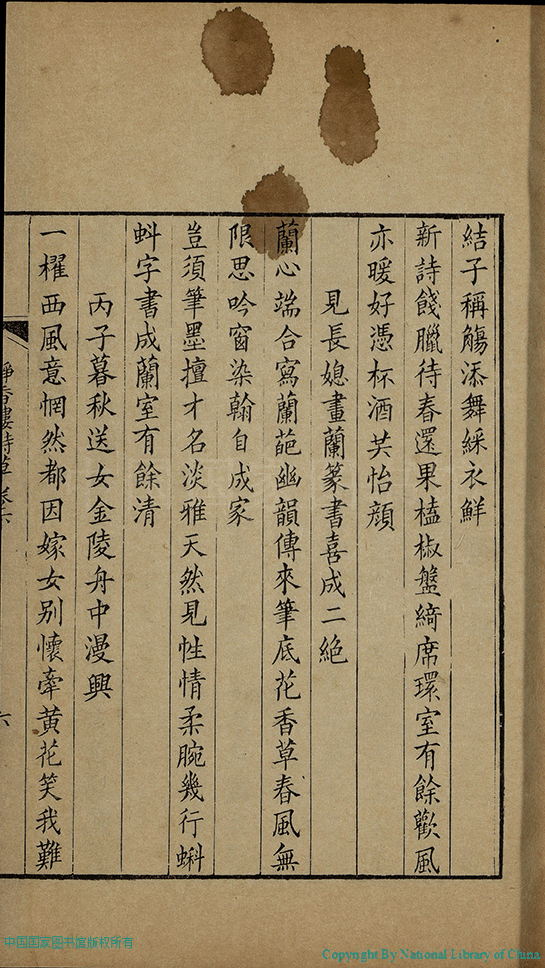 結子稱觴添舞綵衣鮮
新詩餞臘待春還果榼椒盤綺席環室有餘歡風
亦暖好憑杯酒共怡顔
見長媳畫蘭篆書喜成二絶
蘭心端合寫蘭葩幽韻傳來筆底花香草春風無
限思吟窗染翰自成家
豈須筆墨擅才名淡雅天然見性情柔腕幾行蝌
蚪字書成蘭室有餘清
丙子暮秋送女金陵舟中漫興
一櫂西風意惘然都因嫁女别懷牽黄花笑我難
六
中国国家图书馆版权所有
Copyright By National Library of China